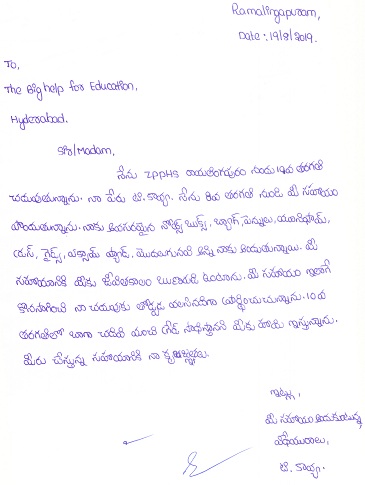 Ramalingapuram,
Date: 19/8/2019.
To,
The Big help for Education,
Hyderabad.
Sir/Madam,
నేను ZPPHS రామలింగపురం నందు 10వ తరగతి
చదువుతున్నాను. నా పేరు టి. కావ్య. నేను 8వ తరగతి నుండి మీ సహాయం
పొందుతున్నాను. నాకు అవసరమైన నోట్స్ బుక్స్, బ్యాగ్, పెన్నులు, యూనిఫామ్,
గైడ్స్, ఎక్సామ్ ప్యాడ్, మొదలగునవి అన్ని నాకు అందుతున్నాయి. మీ
సహాయానికి మీకు జీవితకాలం ఋణపడి ఉంటాను. మీ సహాయం ఇలాగే
కొనసాగించి నా చదువుకు తోడ్పడ వలసినదిగా ప్రార్థించుచున్నాను. 10వ
తరగతిలో బాగా చదివి మంచి గ్రేడ్ సాధిస్తానని మీకు హామి ఇస్తున్నాను.
మీరు చేస్తున్న సహాయానికి నా కృతజ్ఞతలు.
ఇట్లు,
మీ సహాయం అందుకుంటున్న
విధేయురాలు,
టి. కావ్య.